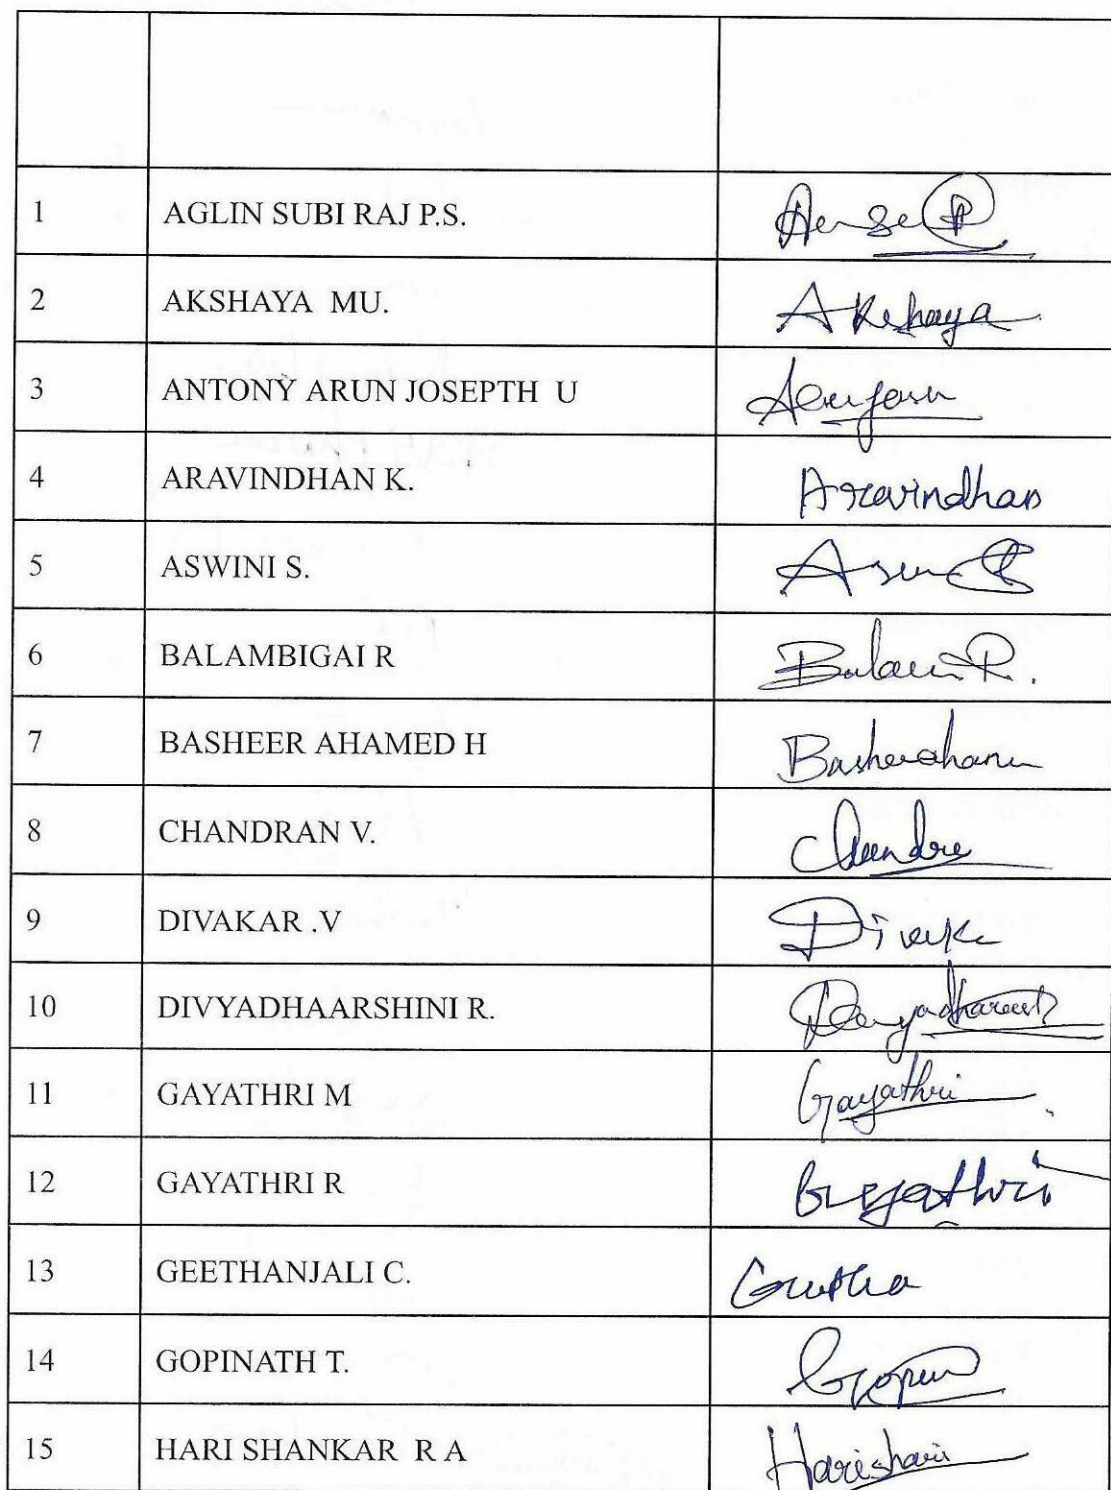 1 AGLIN SUBI RAJ P.S.
2 AKSHAYA MU. Akshaya
3 ANTONY ARUN JOSEPTH U
4 ARAVINDHAN K. Aravindhan
5 ASWINI S.
6 BALAMBIGAI R
7 BASHEER AHAMED H
8 CHANDRAN V.
9 DIVAKAR .V
10 DIVYADHAARSHINI R.
11 GAYATHRI M Gayathri
12 GAYATHRI R Gayathri
13 GEETHANJALI C.
14 GOPINATH T.
15 HARI SHANKAR R A